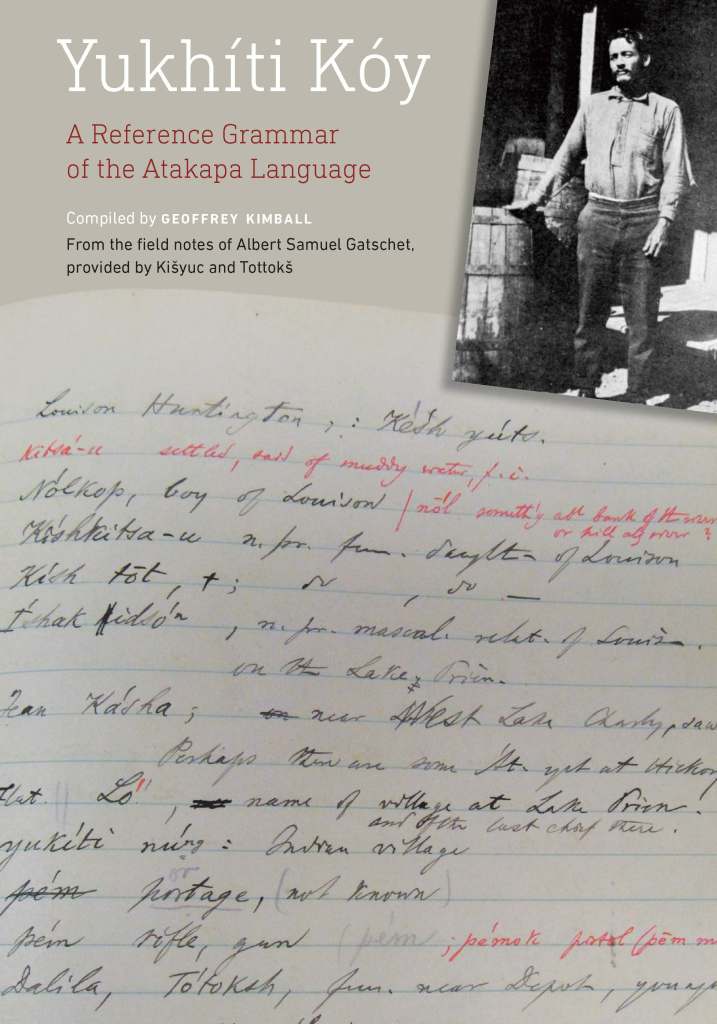 Yukhíti Kóy
A Reference Grammar
of the Atakapa Language
Compiled by GEOFFREY KIMBALL
From the field notes of Albert Samuel Gatschet,
provided by Kišyuc and Tottokš
Louison Huntington, : Késh yúts.
Kitsá-u settled, said of muddy water, f. i.
Nólkop, boy of Louison / nól someth'g alt bank of the river
or hill alg river ?
Kíshkitsa-u n. pr. fem. daught- of Louison
Kísh tōt, †; do , do —
Íshak , n. pr. mascul. relat. of Louis-.
on the Lake, Prien.
Jean Kásha ; near West Lake
Perhaps there are some yet at Hickory
Lō , name of village at Lake Prien.
and of the last chief there.
yukíti núng : Indian village
or
pém portage, (not known)
pém rifle, gun (pém ; pémok pistol (pōm
Dalila, Tótoksh, fem. near Depot,